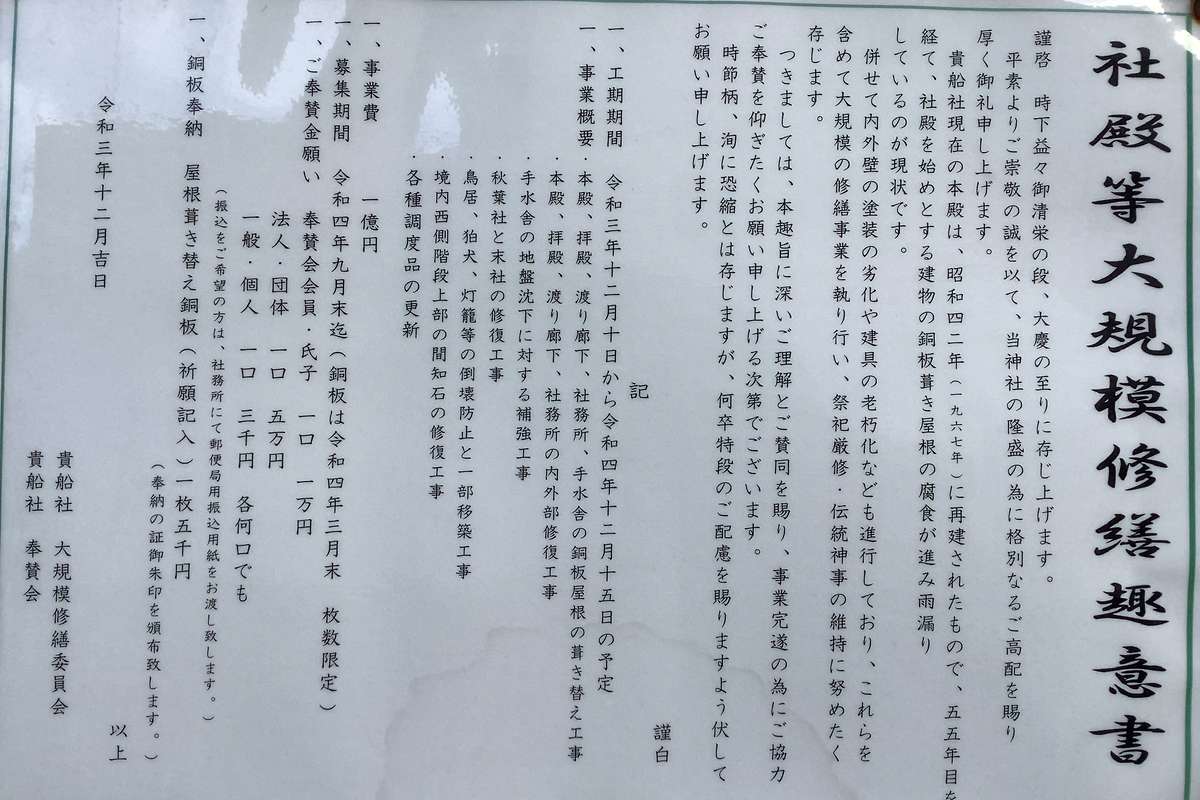 社殿等大規模修繕趣意書
謹啓　時下益々御清栄の段、大慶の至りに存じ上げます。
平素よりご崇敬の誠を以て、当神社の隆盛の為に格別なるご高配を賜り
厚く御礼申し上げます。
貴船社現在の本殿は、昭和四二年（一九六七年）に再建されたもので、五五年目を
経て、社殿を始めとする建物の銅板葺き屋根の腐食が進み雨漏り
しているのが現状です。
併せて内外壁の塗装の劣化や建具の老朽化なども進行しており、これらを
含めて大規模の修繕事業を執り行い、祭祀厳修・伝統神事の維持に努めたく
存じます。
つきましては、本趣旨に深いご理解とご賛同を賜り、事業完遂の為にご協力
ご奉賛を仰ぎたくお願い申し上げる次第でございます。
時節柄、洵に恐縮とは存じますが、何卒特段のご配慮を賜りますよう伏して
お願い申し上げます。
謹白
記
一、工期期間　令和三年十二月十日から令和四年十二月十五日の予定
一、事業概要・本殿、拝殿、渡り廊下、社務所、手水舎の銅板屋根の葺き替え工事
・本殿、拝殿、渡り廊下、社務所の内外部修復工事
・手水舎の地盤沈下に対する補強工事
・秋葉社と末社の修復工事
・鳥居、狛犬、灯籠等の倒壊防止と一部移築工事
・境内西側階段上部の間知石の修復工事
・各種調度品の更新
一、事業費　一億円
一、募集期間　令和四年九月末迄（銅板は令和四年三月末　枚数限定）
一、ご奉賛金願い　奉賛会会員・氏子　一口　一万円
法人・団体　一口　五万円
一般・個人　一口　三千円　各何口でも
（振込をご希望の方は、社務所にて郵便局用振込用紙をお渡し致します。）
一、銅板奉納　屋根葺き替え銅板（祈願記入）一枚五千円
（奉納の証御朱印を頒布致します。）
以上
令和三年十二月吉日
貴船社　大規模修繕委員会
貴船社　奉賛会